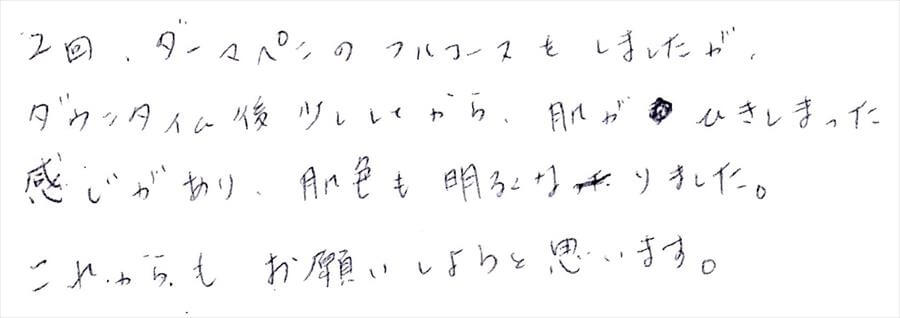 2回、ダーマペンのフルコースをしましたが、
ダウンタイム後少ししてから、肌がひきしまった
感じがあり、肌色も明るくなりました。
これからもお願いしようと思います。